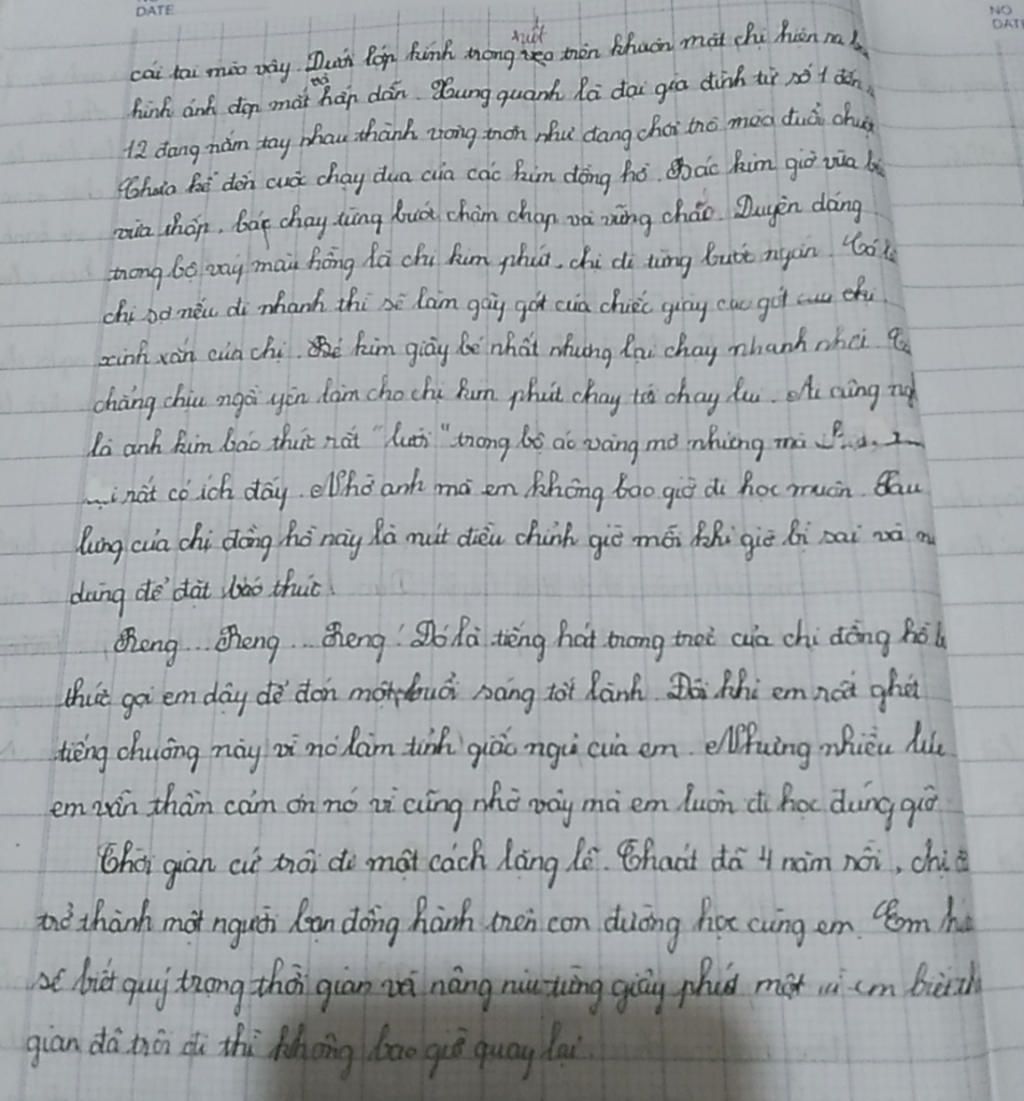 DATE
NO
DATE
cái tai mèo vậy. Dưới lớp kính trong suốt trên khuôn mặt chị hiện ra
hình ảnh đẹp mắt và hấp dẫn. Xung quanh là đại gia đình từ số 1 đến
12 đang nắm tay nhau thành vòng tròn như đang chơi trò mèo đuổi chuột
Chưa kể đến cuộc chạy đua của các kim đồng hồ. Bác kim giờ vừa
vừa thấp, bác chạy từng bước chậm chạp và vững chắc. Duyên dáng
trong bộ váy màu hồng là chị kim phút, chị đi từng bước ngắn. Có lẽ
chị sợ nếu đi nhanh thì sẽ làm gãy gót của chiếc giày cao gót
xinh xắn của chị. Bé kim giây bé nhất nhưng lại chạy nhanh nhất.
chẳng chịu ngồi yên làm cho chị kim phút chạy tới chạy lui. Ai cũng
là anh kim báo thức rất "lười" trong bộ áo vàng mơ nhưng mà
rất có ích đấy. Nhờ anh mà em không bao giờ đi học muộn. Sau
lưng của chị đồng hồ này là nút điều chỉnh giờ mỗi khi giờ bị sai và
dùng để đặt báo thức.
Reng... Reng... Reng! Đó là tiếng hát trong trẻo của chị đồng hồ
thức gọi em dậy để đón một buổi sáng tốt lành. Đôi khi em rất ghét
tiếng chuông này vì nó làm tỉnh giấc ngủ của em. Nhưng nhiều lúc
em vẫn thầm cảm ơn nó vì cũng nhờ vậy mà em luôn đi học đúng giờ
Thời gian cứ trôi đi một cách lặng lẽ. Thoát đã 4 năm rồi, chị
trở thành một người bạn đồng hành trên con đường học cùng em. Em
sẽ biết quý trọng thời gian và nâng niu từng giây phút một vì em biết
gian đã trôi đi thì không bao giờ quay lại.